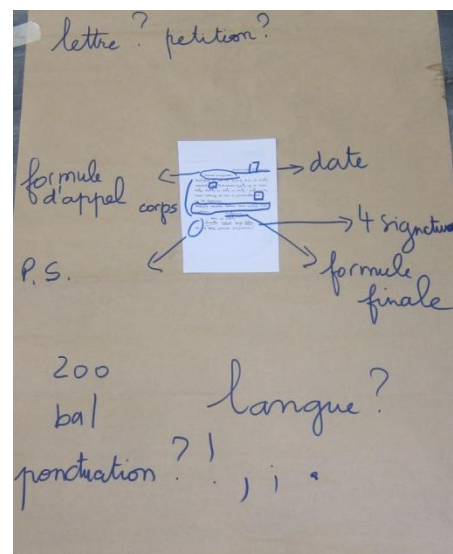 lettre ? petition ?
17
date
formule
d'appel
corps
4 signature
P.S.
formule
finale
200
bal
langue ?
ponctuation ? ! . , ; .